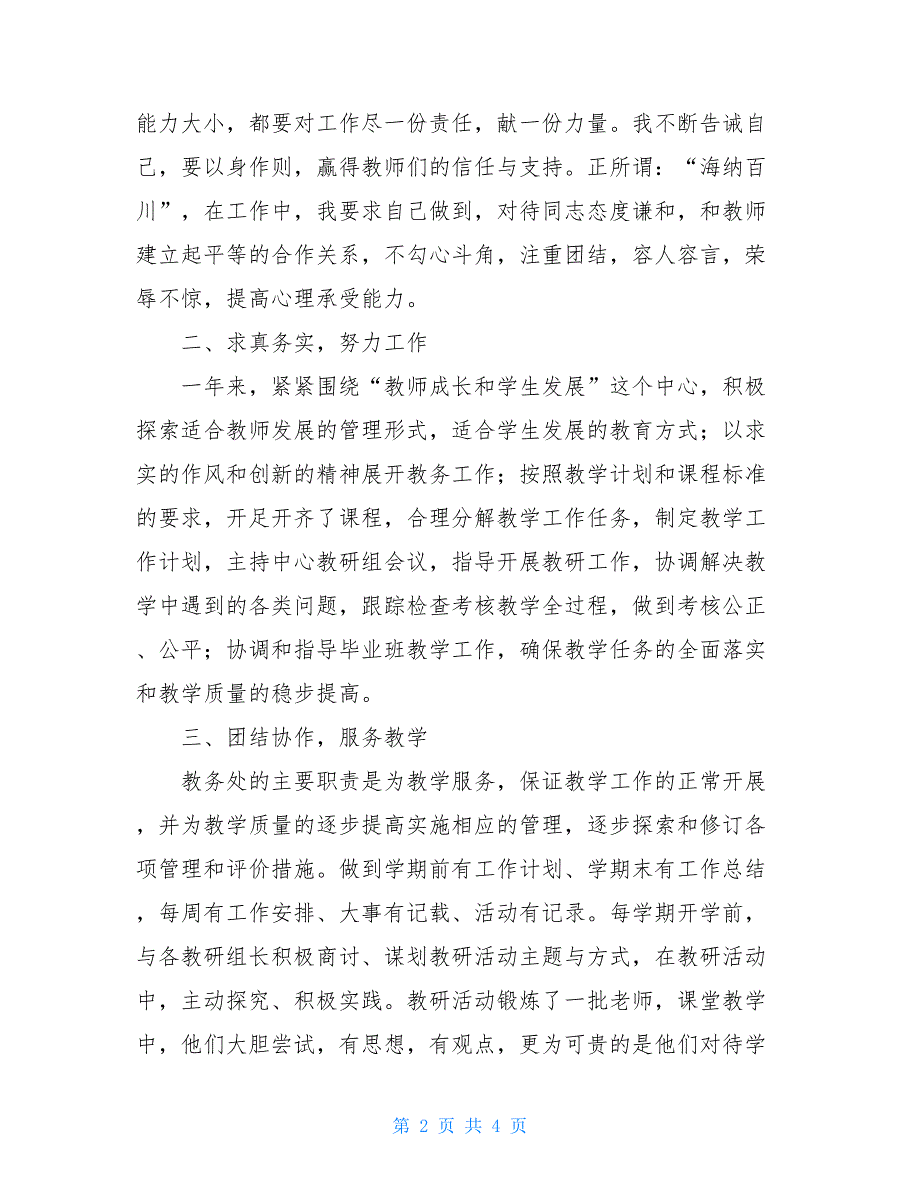 能力大小，都要对工作尽一份责任，献一份力量。我不断告诫自
己，要以身作则，赢得教师们的信任与支持。正所谓：“海纳百
川”，在工作中，我要求自己做到，对待同志态度谦和，和教师
建立起平等的合作关系，不勾心斗角，注重团结，容人容言，荣
辱不惊，提高心理承受能力。
二、求真务实，努力工作
一年来，紧紧围绕“教师成长和学生发展”这个中心，积极
探索适合教师发展的管理形式，适合学生发展的教育方式；以求
实的作风和创新的精神展开教务工作；按照教学计划和课程标准
的要求，开足开齐了课程，合理分解教学工作任务，制定教学工
作计划，主持中心教研组会议，指导开展教研工作，协调解决教
学中遇到的各类问题，跟踪检查考核教学全过程，做到考核公正
、公平；协调和指导毕业班教学工作，确保教学任务的全面落实
和教学质量的稳步提高。
三、团结协作，服务教学
教务处的主要职责是为教学服务，保证教学工作的正常开展
，并为教学质量的逐步提高实施相应的管理，逐步探索和修订各
项管理和评价措施。做到学期前有工作计划、学期末有工作总结
，每周有工作安排、大事有记载、活动有记录。每学期开学前，
与各教研组长积极商讨、谋划教研活动主题与方式，在教研活动
中，主动探究、积极实践。教研活动锻炼了一批老师，课堂教学
中，他们大胆尝试，有思想，有观点，更为可贵的是他们对待学
第 2 页 共 4 页